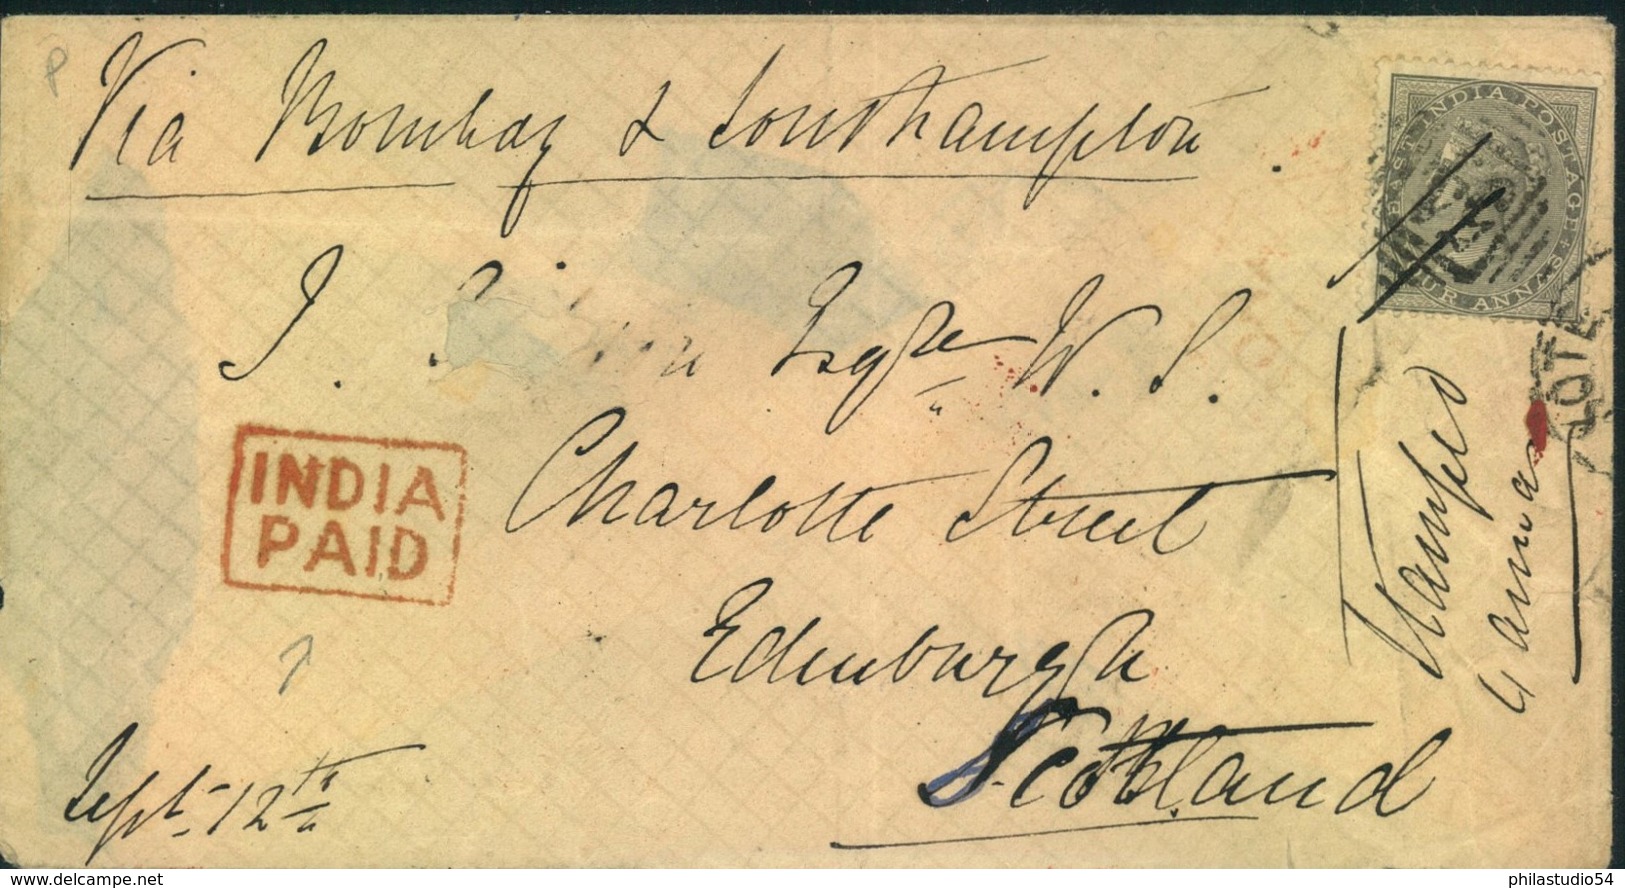 Via Bombay & Southampton.
EAST INDIA POSTAGE
FOUR ANNAS
J. Esqre W. S.
Charlotte Street
Edinburgh
Scotland
INDIA
PAID
Stamped
4 annas
Septr 12th
philastudio54
www.delcampe.net